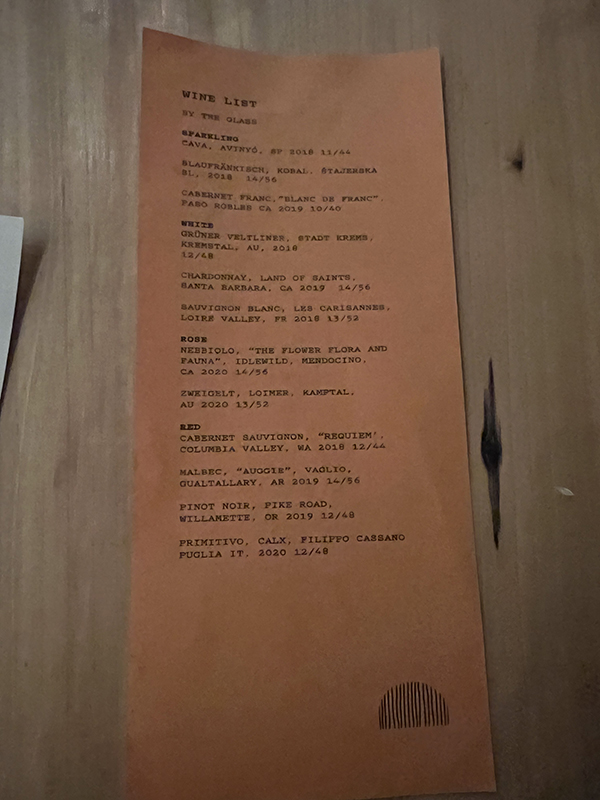 WINE LIST
BY THE GLASS
SPARKLING
CAVA, AVINYÓ, SP 2018 11/44
BLAUFRÄNKISCH, KOBAL, ŠTAJERSKA
SL, 2018 14/56
CABERNET FRANC,"BLANC DE FRANC",
PASO ROBLES CA 2019 10/40
WHITE
GRÜNER VELTLINER, STADT KREMS,
KREMSTAL, AU, 2018
12/48
CHARDONNAY, LAND OF SAINTS,
SANTA BARBARA, CA 2019 14/56
SAUVIGNON BLANC, LES CARISANNES,
LOIRE VALLEY, FR 2018 13/52
ROSE
NEBBIOLO, "THE FLOWER FLORA AND
FAUNA", IDLEWILD, MENDOCINO,
CA 2020 14/56
ZWEIGELT, LOIMER, KAMPTAL,
AU 2020 13/52
RED
CABERNET SAUVIGNON, "REQUIEM',
COLUMBIA VALLEY, WA 2018 12/44
MALBEC, "AUGGIE", VAGLIO,
GUALTALLARY, AR 2019 14/56
PINOT NOIR, PIKE ROAD,
WILLAMETTE, OR 2019 12/48
PRIMITIVO, CALX, FILIPPO CASSANO
PUGLIA IT, 2020 12/48